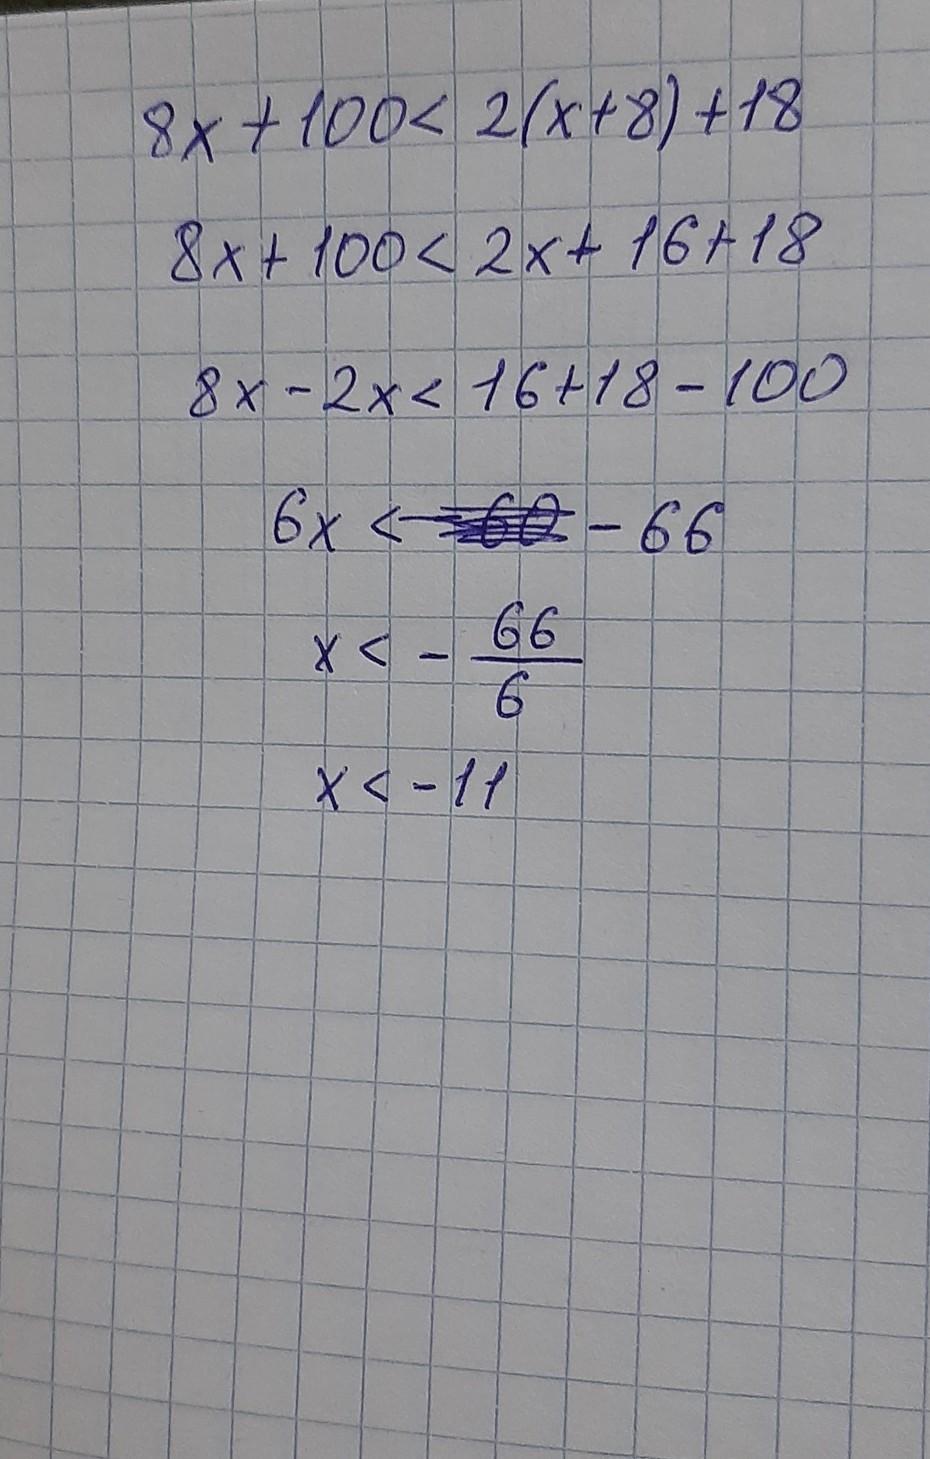 8x + 100 < 2(x+8) + 18
8x + 100 < 2x + 16 + 18
8x - 2x < 16 + 18 - 100
6x < - 66
x < - 66/6
x < - 11